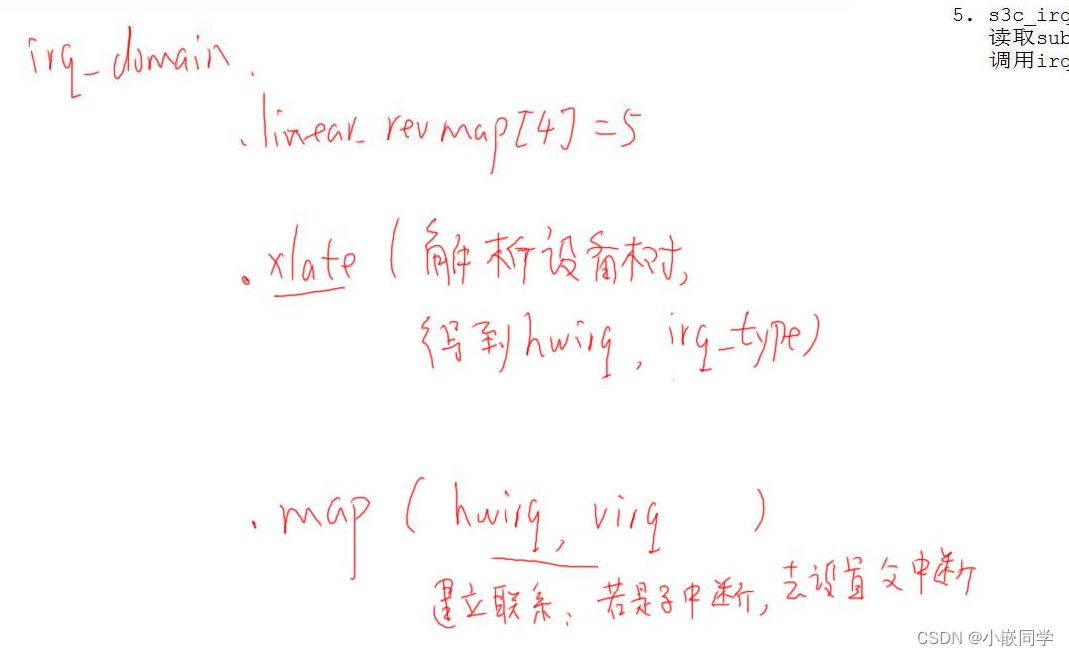 5. s3c_irq
读取sub
调用irq
irq_domain.
.linear_revmap[4]=5
.xlate (解析设备树,
得到hwirq, irq_type)
.map (hwirq, virq )
建立联系: 若是子中断, 去设置父中断
CSDN @小嵌同学